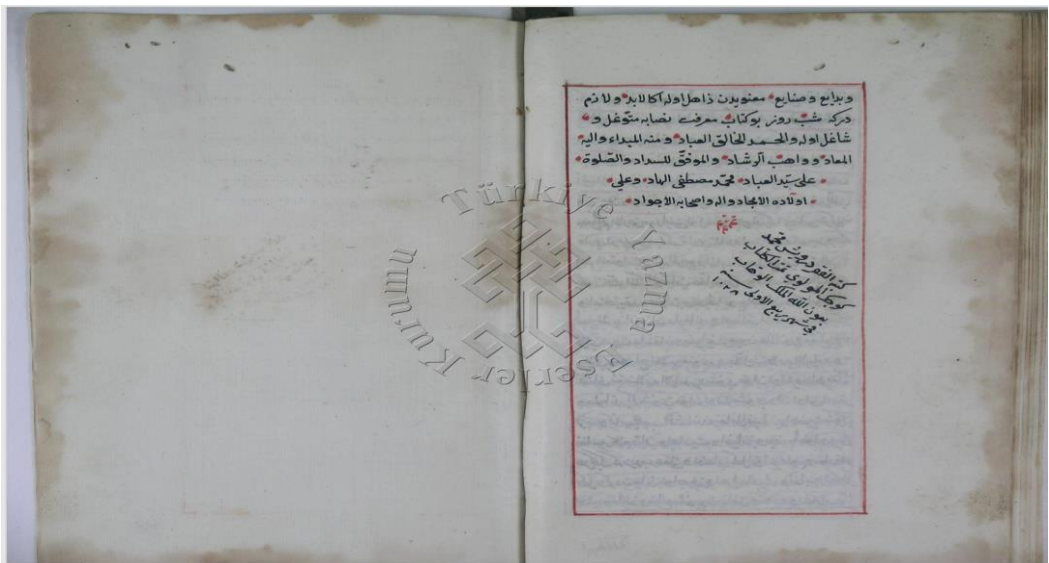 وبدایع وصنایع معنویدن ذاهل اوله آکا لابد ولازم
درکه شب روز بوکتاب معرفت نصابه متوغل و
شاغل اوله والحمد لخالق العباد ومنه المبداء والیه
المعاد وواهب الرشاد والموفق للسداد والصلوة
علی سید العباد محمد مصطفی الهاد وعلی
اولاده الامجاد واله واصحابه الاجواد
كتبه الفقير درويش محمد
كوچك المولوى
بعون الله الملك الوهاب
فى شهر ربيع الاولى سنه
١٠٣٨
Türkiye Yazma Eserler Kurumu